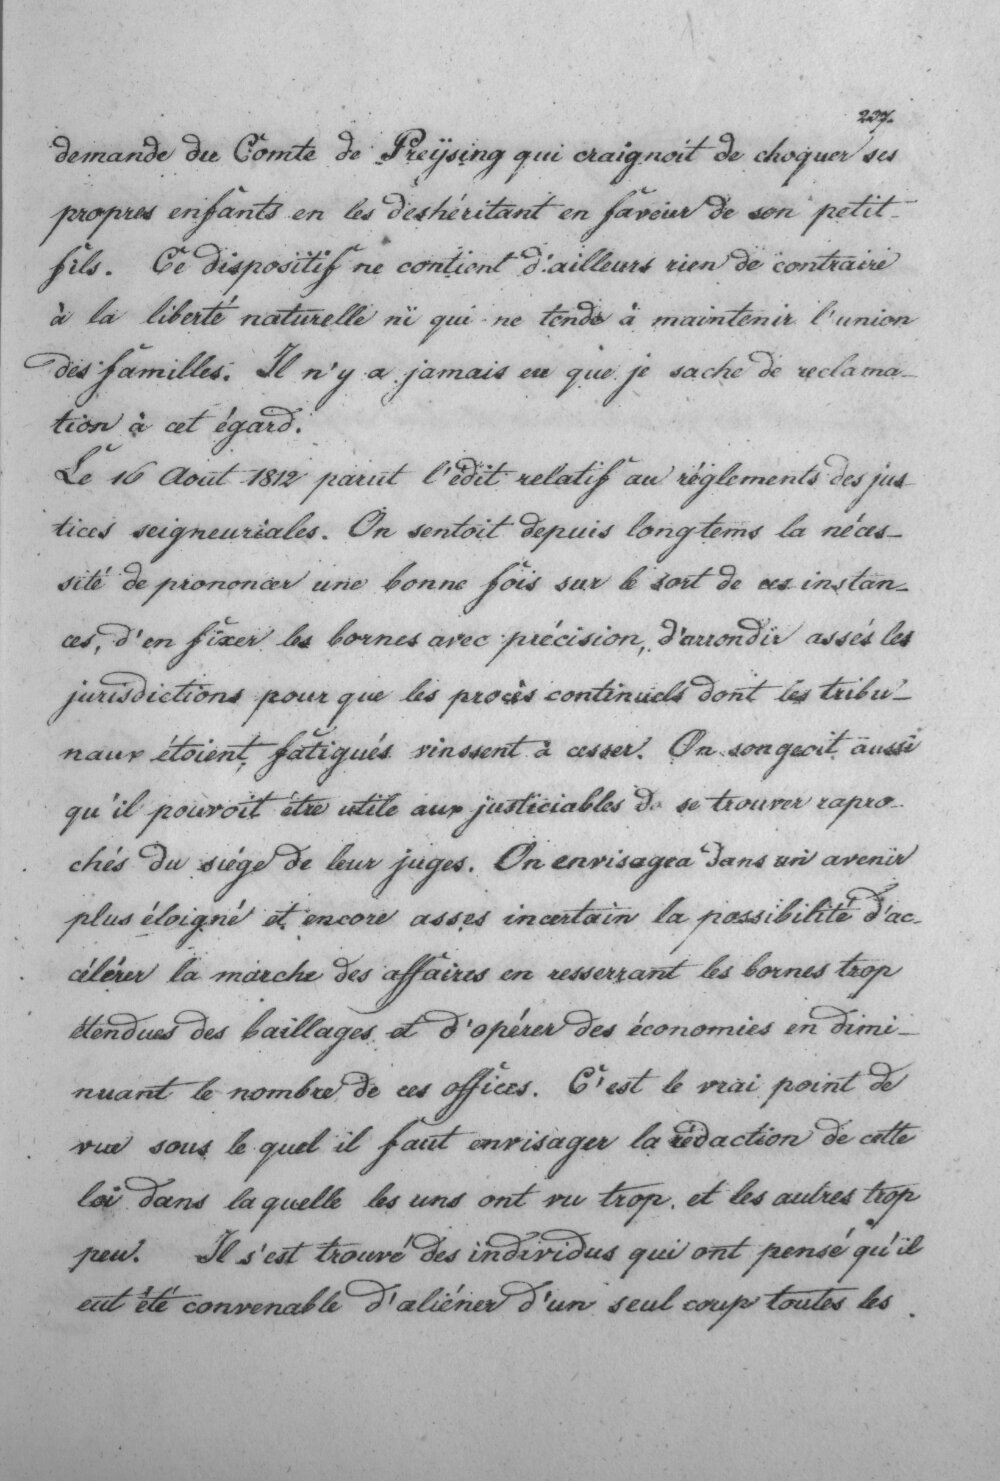 237.
demande du Comte de Preÿsing qui craignoit de choquer ses
propres enfants en les déshéritant en faveur de son petit-
fils. Ce dispositif ne contient d'ailleurs rien de contraire
à la liberté naturelle ni qui ne tende à maintenir l'union
des familles. Il n'y a jamais eu que je sache de reclama-
tion à cet égard.
Le 16 Aout 1812 parut l'édit relatif au réglements des jus
tices seigneuriales. On sentoit depuis longtems la néces-
sité de prononcer une bonne fois sur le sort de ces instan-
ces, d'en fixer les bornes avec précision, d'arrondir assés les
jurisdictions pour que les procès continuels dont les tribu-
naux étoient fatigués vinssent à cesser. On songeoit aussi
qu'il pouvoit être utile aux justiciables de se trouver rapro-
chés du siége de leur juges. On envisagea dans un avenir
plus éloigné et encore asses incertain la possibilité d'ac-
célérer la marche des affaires en resserrant les bornes trop
étendues des baillages et d'opérer des économies en dimi-
nuant le nombre de ces offices. C'est le vrai point de
vue sous le quel il faut envisager la rédaction de cette
loi dans la quelle les uns ont vu trop et les autres trop
peu. Il s'est trouvé des individus qui ont pensé qu'il
eut été convenable d'aliéner d'un seul coup toutes les